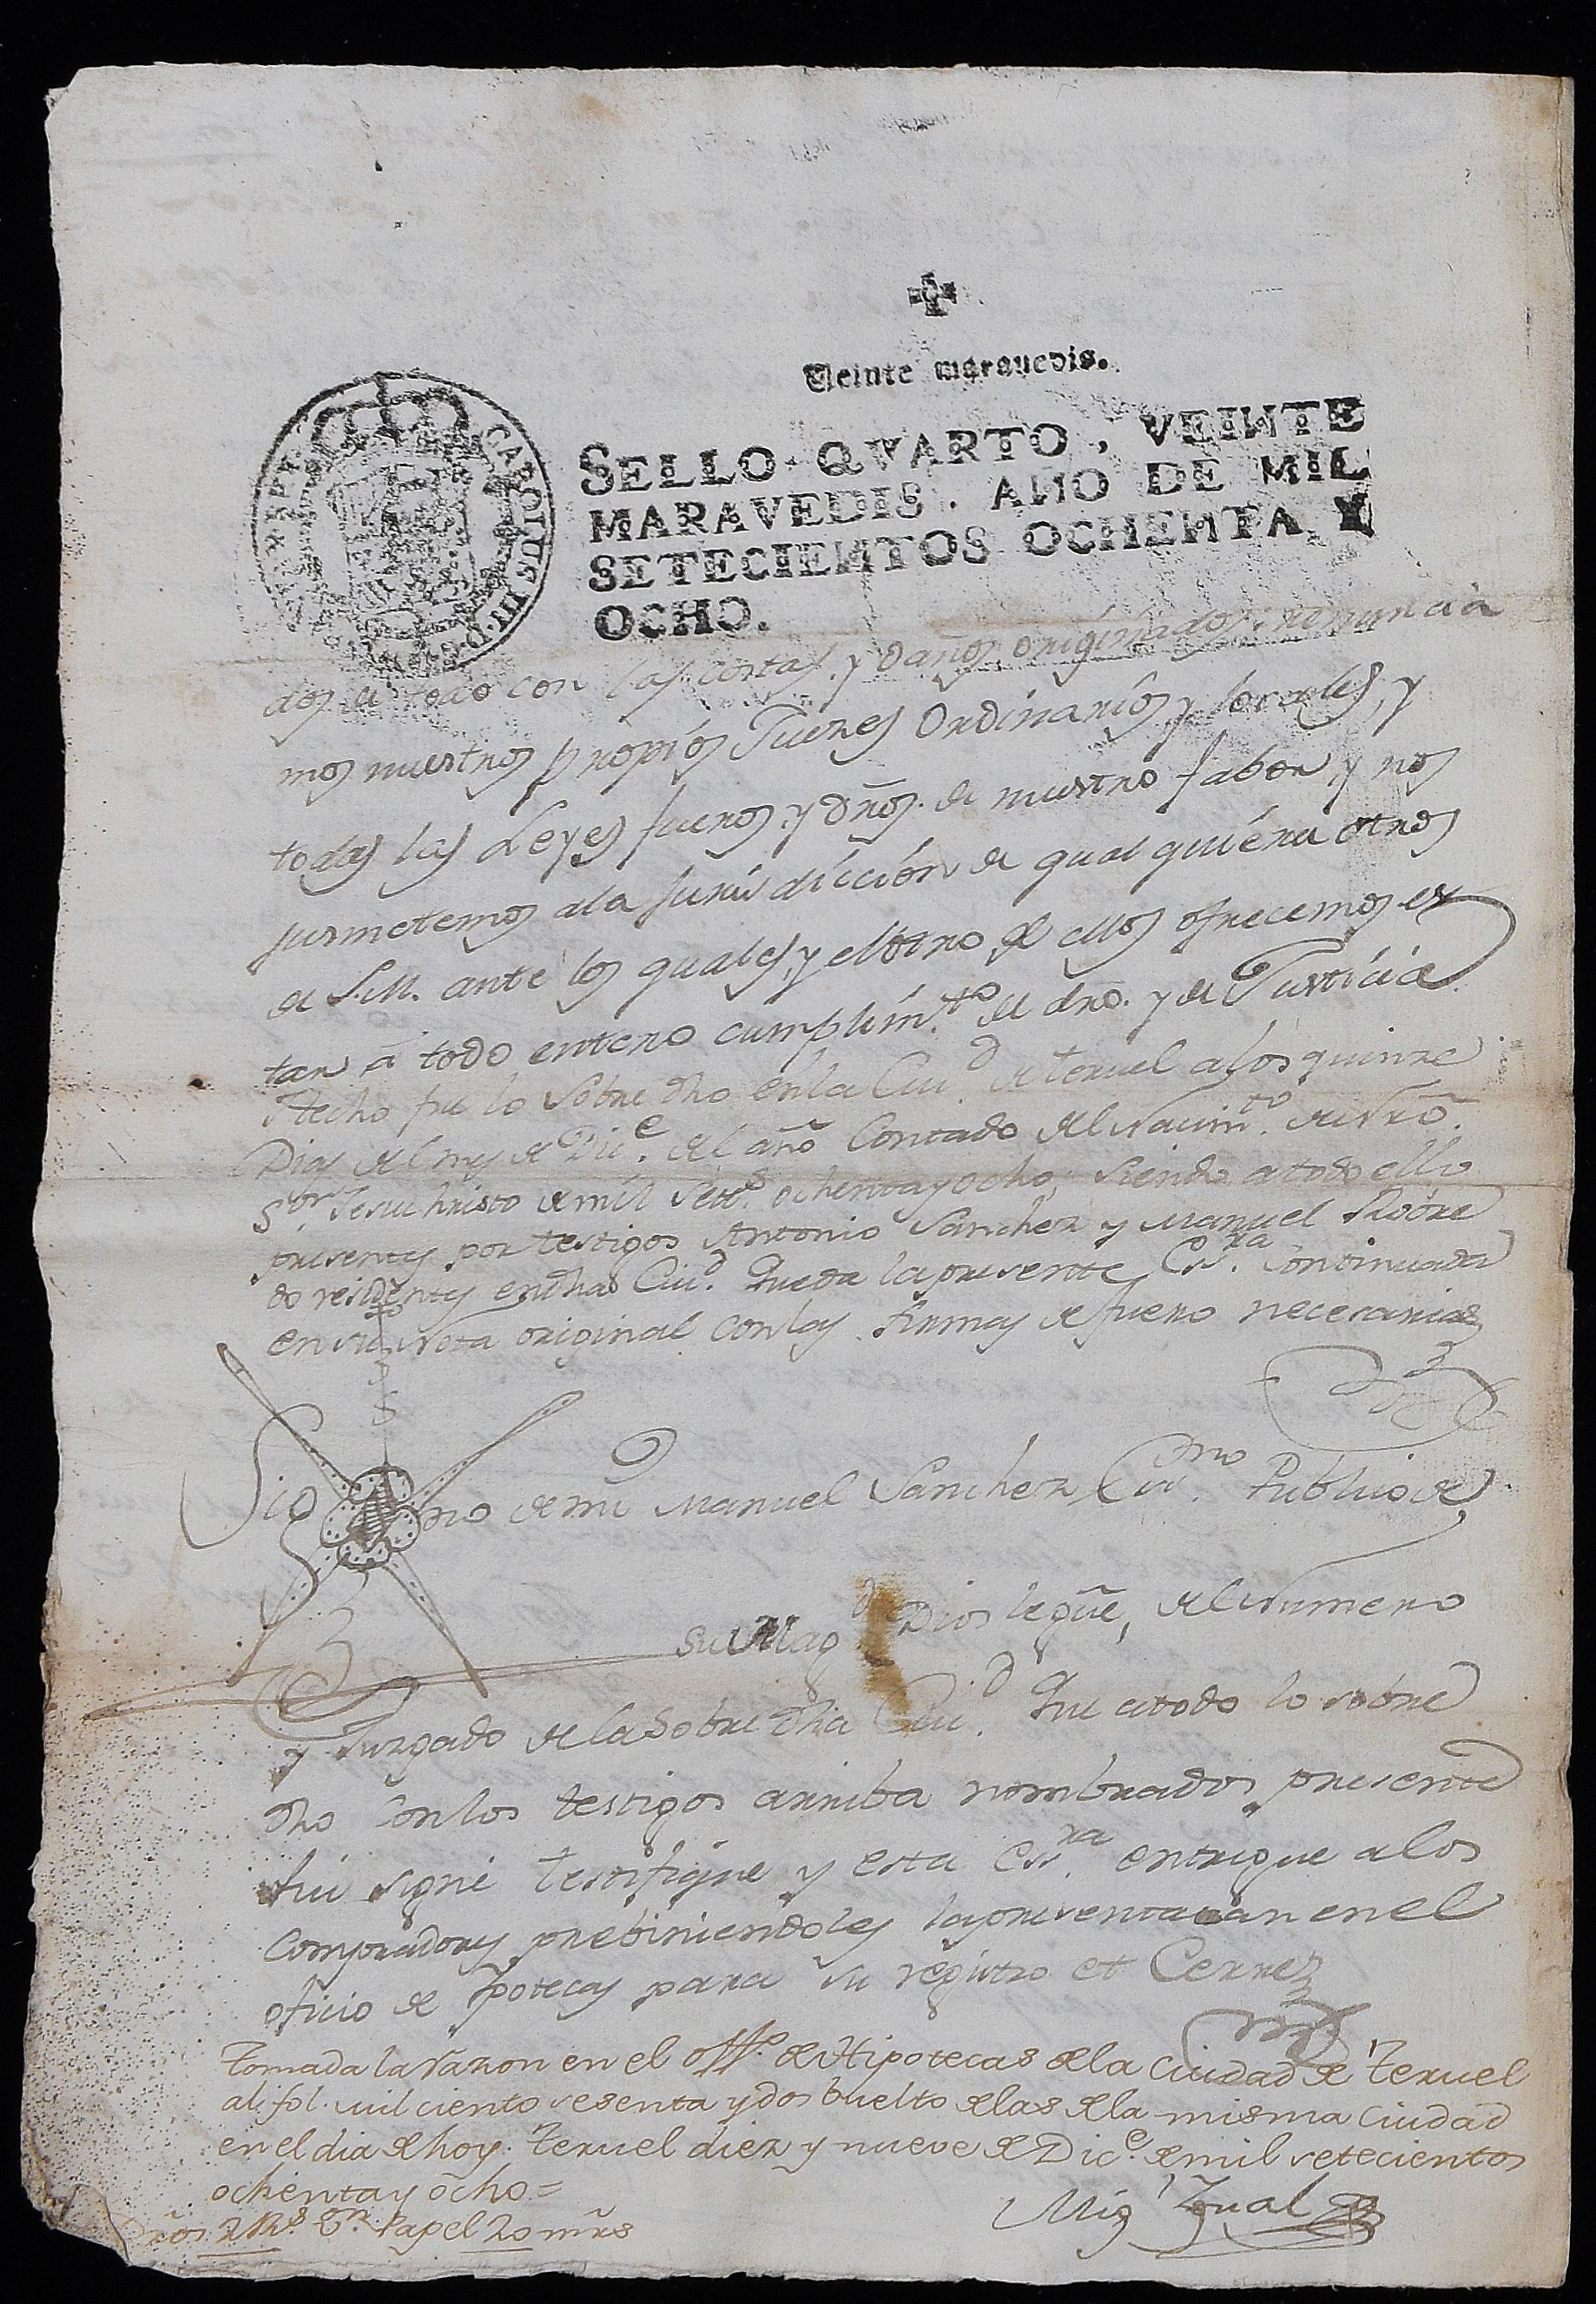 Veinte marauedis.
SELLO QVARTO, VEINTE
MARAVEDIS. AÑO DE MIL
SETECIENTOS OCHENTA Y
OCHO.
CAROLUS III. D.
dos de todo con las costas, y daños originados: renuncia
mos nuestros propios Jueces Ordinarios y locales, y
todas las Leyes fueros, y dr̃os. de nuestro fabor, y nos
susmetemos ala Jurisdiccion de qual quiera otros
de S.M. ante los quales, y el otro de ellos ofrecemos es
tar à todo entero cumplim.to de dro. y de Justicia
Hecho fue lo sobre dho en la Ciu.d de Teruel a los quinze
Dias del mes de Dic.e del año Contado del Nacim.to de Nrõ.
S.or Jesuchristo de mil Sett.s ochenta y ocho, siendo a todo ello
presentes por testigos Antonio Sanchez y Manuel Robre
do residentes en dha Ciu.d Queda la presente Ess.ra Continuada
en su Nota original con las firmas de fuero necesarias
Sig no de mi Manuel Sanchez Ess.no Publico de
su Mag.d Dios le güe, del Numero
y Juzgado de la sobre dha Ciu.d Que a todo lo sobre
dho con los testigos arriba nombrados presente
fui signé testifique y esta Ess.ra entregue a los
Compradores prebiniendoles la presentaran en el
oficio de Ipotecas para su registro et Cerre
Tomada la razon en el off.o de Hipotecas de la Ciudad de Teruel
al fol. mil ciento sesenta y dos buelto de las de la misma Ciudad
en el dia de hoy. Teruel diez y nueve de Dic.e de mil setecientos
ochenta y ocho =
Mig.l Igual
Dr̃os 2 R.s v.n Papel 20 mr̃s